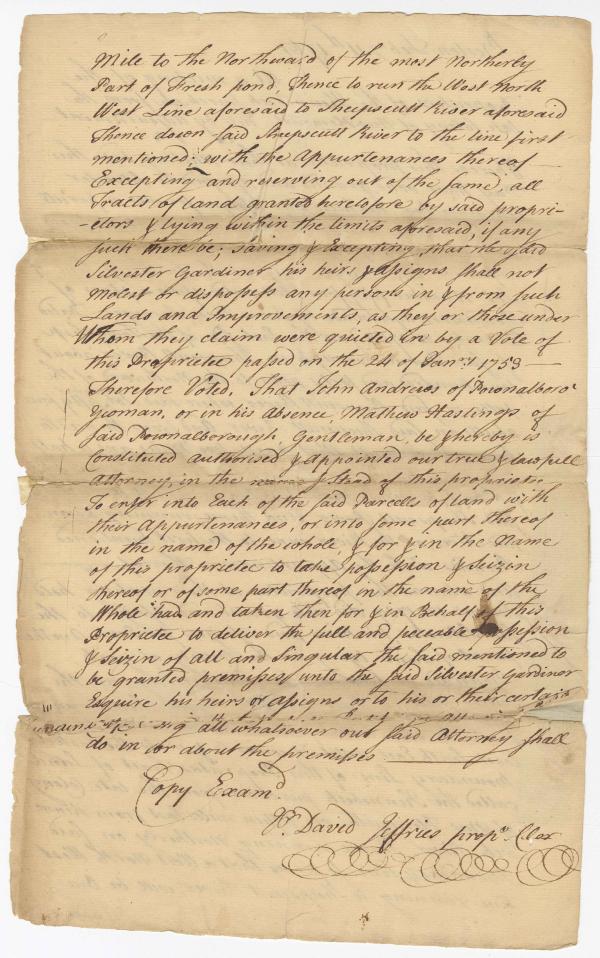 Mile to the Northward of the most Northerly
Part of Fresh pond, Thence to run the West North
West Line aforesaid to Sheepscutt River aforesaid
Thence down said Sheepscutt River to the line first
mentioned; with the Appurtenances thereof
Excepting and reserving out of the same, all
Tracts of land granted heretofore by said propri-
-etors & lying within the limits aforesaid, if any
such there be; saving & Excepting, that he said
Silvester Gardiner his heirs & assigns shall not
Molest or dispossess any persons in & from such
Lands and Improvements, as they or those under
Whom they claim were quieted in by a Vote of
this Proprietee passed on the 24 of Jany 1753
Therefore Voted, That John Andrews of Pownalboro'
Yeoman, or in his Absence, Mathew Hastings of
said Pownalborough, Gentleman, be & hereby is
Constituted authorised & appointed our true & lawfull
Attorney, in the name & stead of this proprietee
To enter into Each of the said Parcells of land with
their Appurtenances, or into some part thereof
in the name of the whole, & for & in the Name
of this proprietee to take possession & Seizin
thereof or of some part thereof in the name of the
Whole had and taken then for & in Behalf of this
Proprietee to deliver the full and peceable possession
& Seizin of all and Singular the said mentioned to
be granted premisses unto the said Silvester Gardiner
Esquire his heirs or assigns or to his or their certain
all whatsoever our said Attorney shall
do in or about the premises
Copy Examd.
Pr David Jeffries proprs Cler